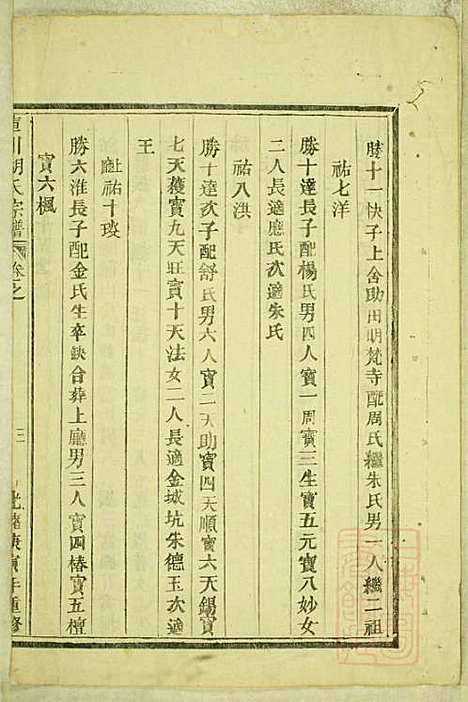 勝十一快子上舍助田明梵寺配周氏繼朱氏男一人繼二祖
祐七洋
勝十達長子配楊氏男四人寳一周寳三生寳五元寳八妙女
二人長適應氏次適朱氏
祐八淇
勝十達次子配舒氏男六人寳二天助寳四天順寳六天錫寳
七天護寳九天旺寳十天法女二人長適金城坑朱德玉次適
王
祐十琰
勝六淮長子配金氏生卒缺合葬上廳男三人寳四椿寳五檀
寳六楓
川胡氏宗譜 卷之 三 光緒庚寅年重修